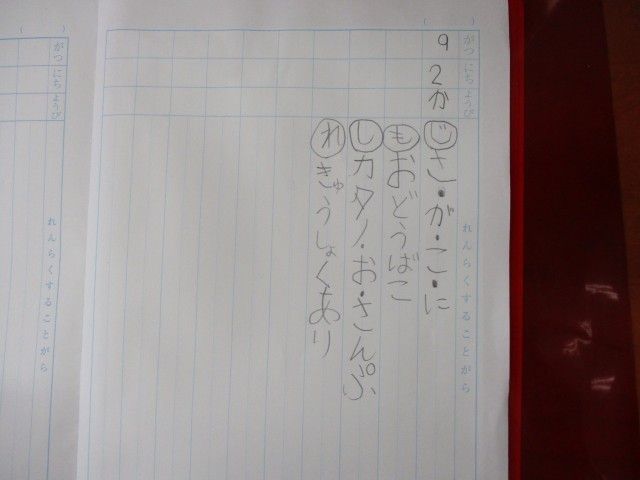 がつ にち ようび
れんらくすることがら
9 2 か
じ さ・が・こ・に
も おどうばこ
し カタノ・お・さんぷ
れ きゅうしょくあり
がつ にち ようび
れんらくすることがら